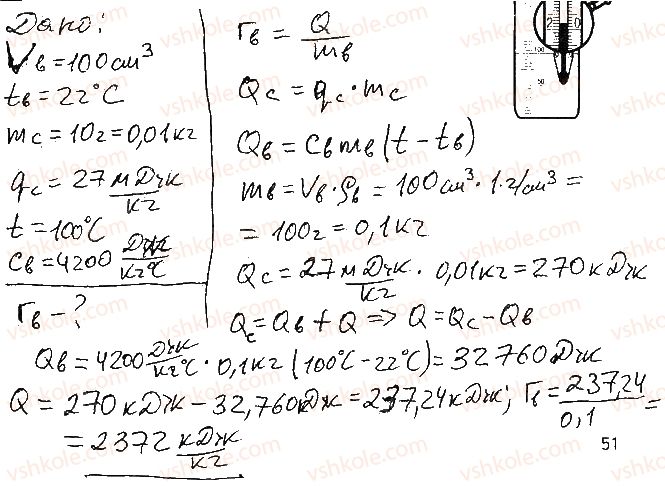 Дано:
Vв = 100 см³
tв = 22°С
mс = 10г = 0,01 кг
qс = 27 мДж/кг
t = 100°С
Cв = 4200 Дж/кг°С
rв - ?
rв = Q/mв
Qс = qс · mс
Qв = Cв mв (t - tв)
mв = Vв · ρв = 100 см³ · 1 г/см³ =
= 100г = 0,1 кг
Qс = 27 мДж/кг · 0,01 кг = 270 кДж
Qс = Qв + Q => Q = Qс - Qв
Qв = 4200 Дж/кг°С · 0,1 кг (100°С - 22°С) = 32760 Дж
Q = 270 кДж - 32,760 кДж = 237,24 кДж; rв = 237,24/0,1 =
= 2372 кДж/кг
2 0
100
50
51
vshkole.com